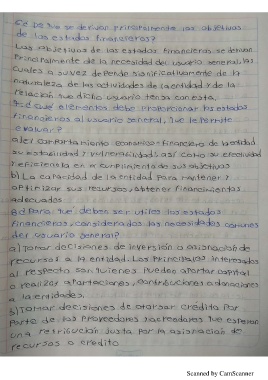 6¿ De que se derivan principalmente los objetivos
de los estados financieros?
Los objetivos de los estados financieros se derivan
Principalmente de la necesidad del usuario general, las
cuales a su vez depende significativamente de la
naturaleza de las actividades de la entidad y de la
relación que dicho usuario tenga con esta.
7¿ que elementos debe Proporcionar los estados
Financieros al usuario general, que le permite
evaluar?
a) el comportamiento economico-financiero de la entidad
su estabilidad y vulnerabilidad así como su efectividad
y eficiencia en el cumplimiento de sus objetivos
b) La capacidad de la entidad para mantener y
optimizar sus recursos, obtener financiamientos
adecuados
8¿ Para que deben ser utiles los estados
financieros, considerados las necesidades comunes
del usuario general?
a) Tomar decisiones de inversión o asignación de
recursos a la entidad. Los principales interesados
al respecto son quienes pueden aportar capital
o realizar aportaciones, contribuciones o donaciones
a la entidades.
b) Tomar decisiones de otorgar crédito por
parte de los proveedores y acreedores que esperan
una retribución justa por la asignación de
recursos o credito
Scanned by CamScanner